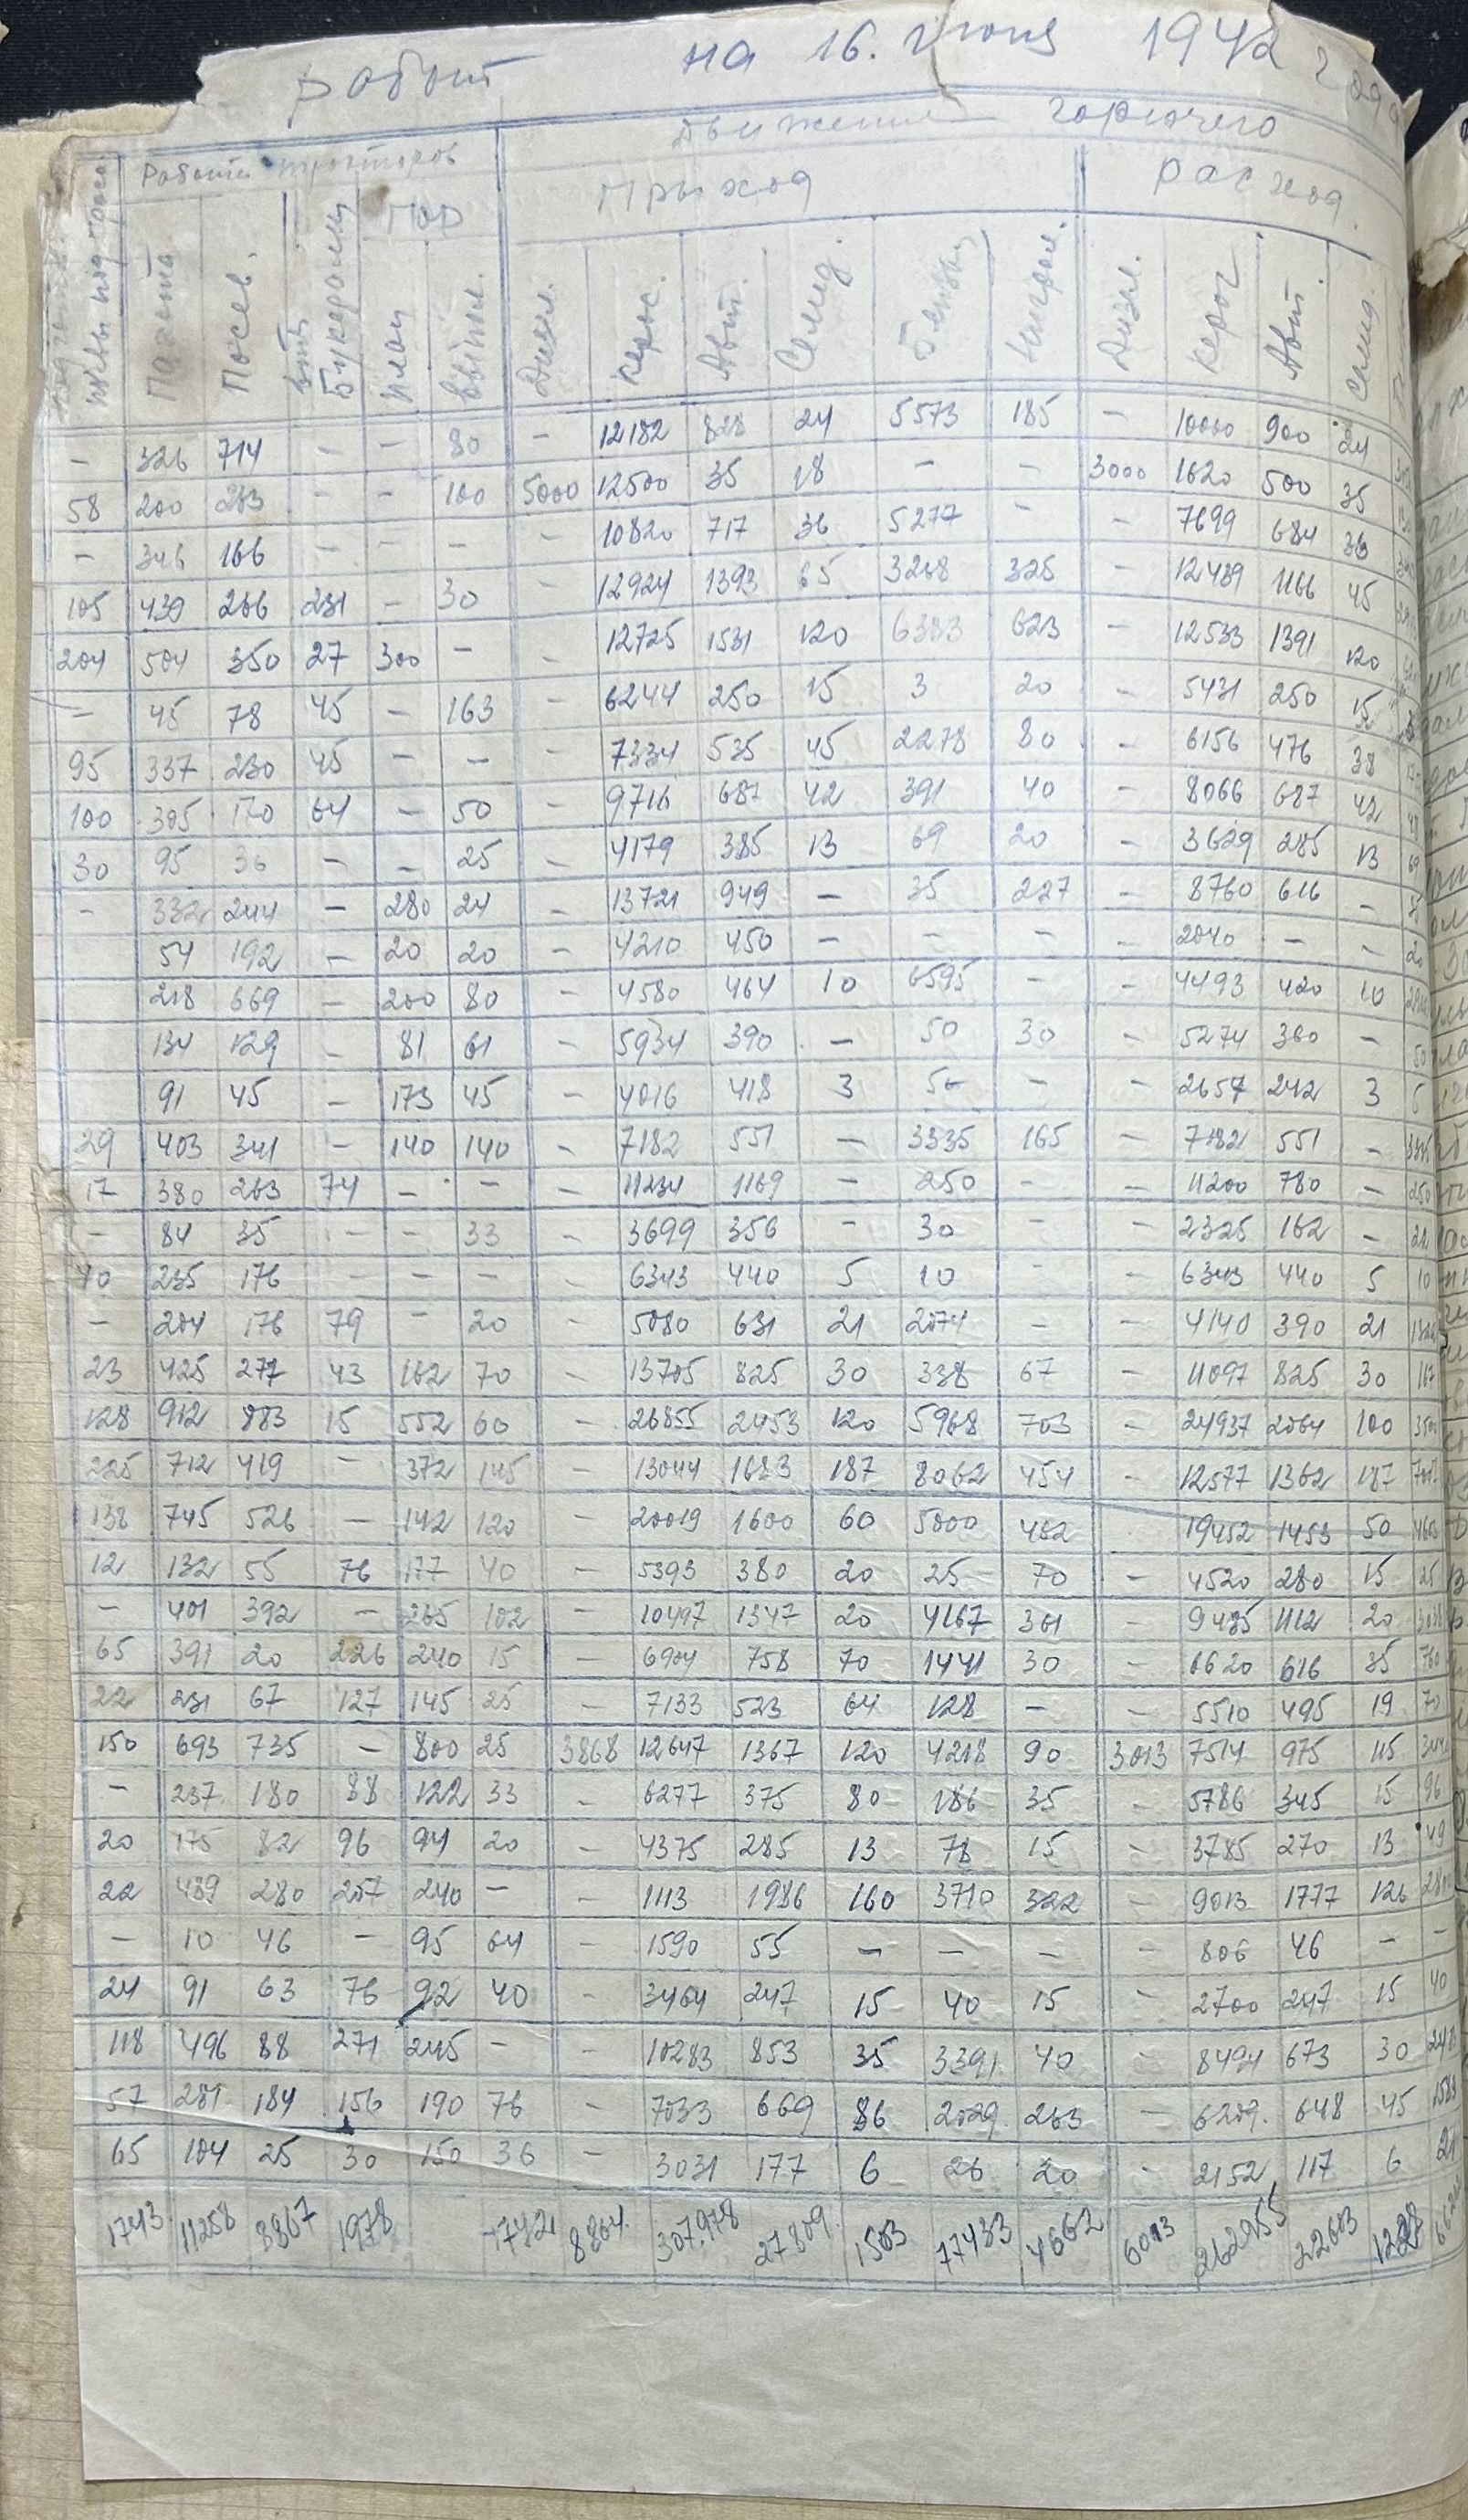 работ на 16. Июня 1942 г
Движение горючего
Работа тракторов Приход Расход
Пар
живы под просо Пахота Посев. Букеровку план выпол. Дизил. Керос. Авт. Солид. Бензин Нигрол. Дизил. Керос Авт. Солид.
– 326 714 – – 80 – 12182 828 24 5573 185 – 10000 900 24
58 200 263 – – 100 5000 12500 35 18 – – 3000 1620 500 35
– 346 166 – – – – 10820 717 36 5277 – – 7699 684 36
105 439 206 231 – 30 – 12924 1393 65 3268 325 – 12439 1166 45
204 504 350 27 300 – – 12725 1531 120 6333 623 – 12533 1391 120
– 45 78 45 – 163 – 6244 250 15 3 20 – 5431 250 15
95 337 230 45 – – – 7334 535 45 2278 80 – 6156 476 38
100 305 170 64 – 50 – 9716 687 42 391 40 – 8066 687 42
30 95 36 – – 25 – 4179 385 13 69 20 – 3629 285 13
– 332 244 – 280 24 – 13721 949 – 35 227 – 8760 616 –
54 192 – 20 20 – 4210 450 – – – – 2040 – –
218 669 – 200 80 – 4580 464 10 6595 – – 4493 420 10
134 129 – 81 61 – 5934 390 – 50 30 – 5274 360 – 50
91 45 – 173 45 – 4016 418 3 56 – – 2657 242 3
29 403 341 – 140 140 – 7182 551 – 3335 165 – 7182 551 – 3335
17 380 263 74 – – – 11234 1169 – 250 – – 11200 780 – 250
– 84 35 – – 33 – 3699 356 – 30 – – 2325 162 –
70 235 176 – – – – 6343 440 5 10 – – 6343 440 5 10
– 204 176 79 – 20 – 5080 631 21 2074 – – 4140 390 21
23 425 277 43 162 70 – 13705 825 30 338 67 – 11097 825 30 167
128 912 883 15 552 60 – 26855 2453 120 5968 703 – 24937 2064 100
225 712 419 – 372 145 – 13044 1683 187 8062 454 – 12577 1362 187
138 745 526 – 142 120 – 20019 1600 60 5000 452 19452 1453 50
12 132 55 76 177 40 – 5393 380 20 25 70 – 4520 280 15 25
– 401 392 – 265 102 – 10497 1347 20 4167 361 – 9435 1112 20
65 391 20 226 240 15 – 6904 758 70 1441 30 – 6620 616 35 760
22 231 67 127 145 25 – 7133 523 64 128 – – 5510 495 19 70
150 693 735 – 800 25 3868 12647 1367 120 4218 90 3013 7514 975 115
– 237 180 88 122 33 – 6277 375 80 186 35 – 5786 345 15 96
20 175 82 96 94 20 – 4375 285 13 78 15 – 3785 270 13 49
22 439 280 257 240 – – 1113 1986 160 3710 322 – 9013 1777 126
– 10 46 – 95 64 – 1590 55 – – – – 806 46 – –
24 91 63 76 92 40 – 3464 247 15 40 15 – 2700 247 15 40
118 496 88 271 245 – – 10283 853 35 3391 40 – 8494 673 30
57 281 184 156 190 76 – 7033 669 86 2029 263 – 6209 648 45 1583
65 104 25 30 150 36 – 3031 177 6 26 20 – 2152 117 6 21
1743 11258 8867 1978 1742 8864 307.978 27809 1503 77433 4662 6013 262955 22603 1228